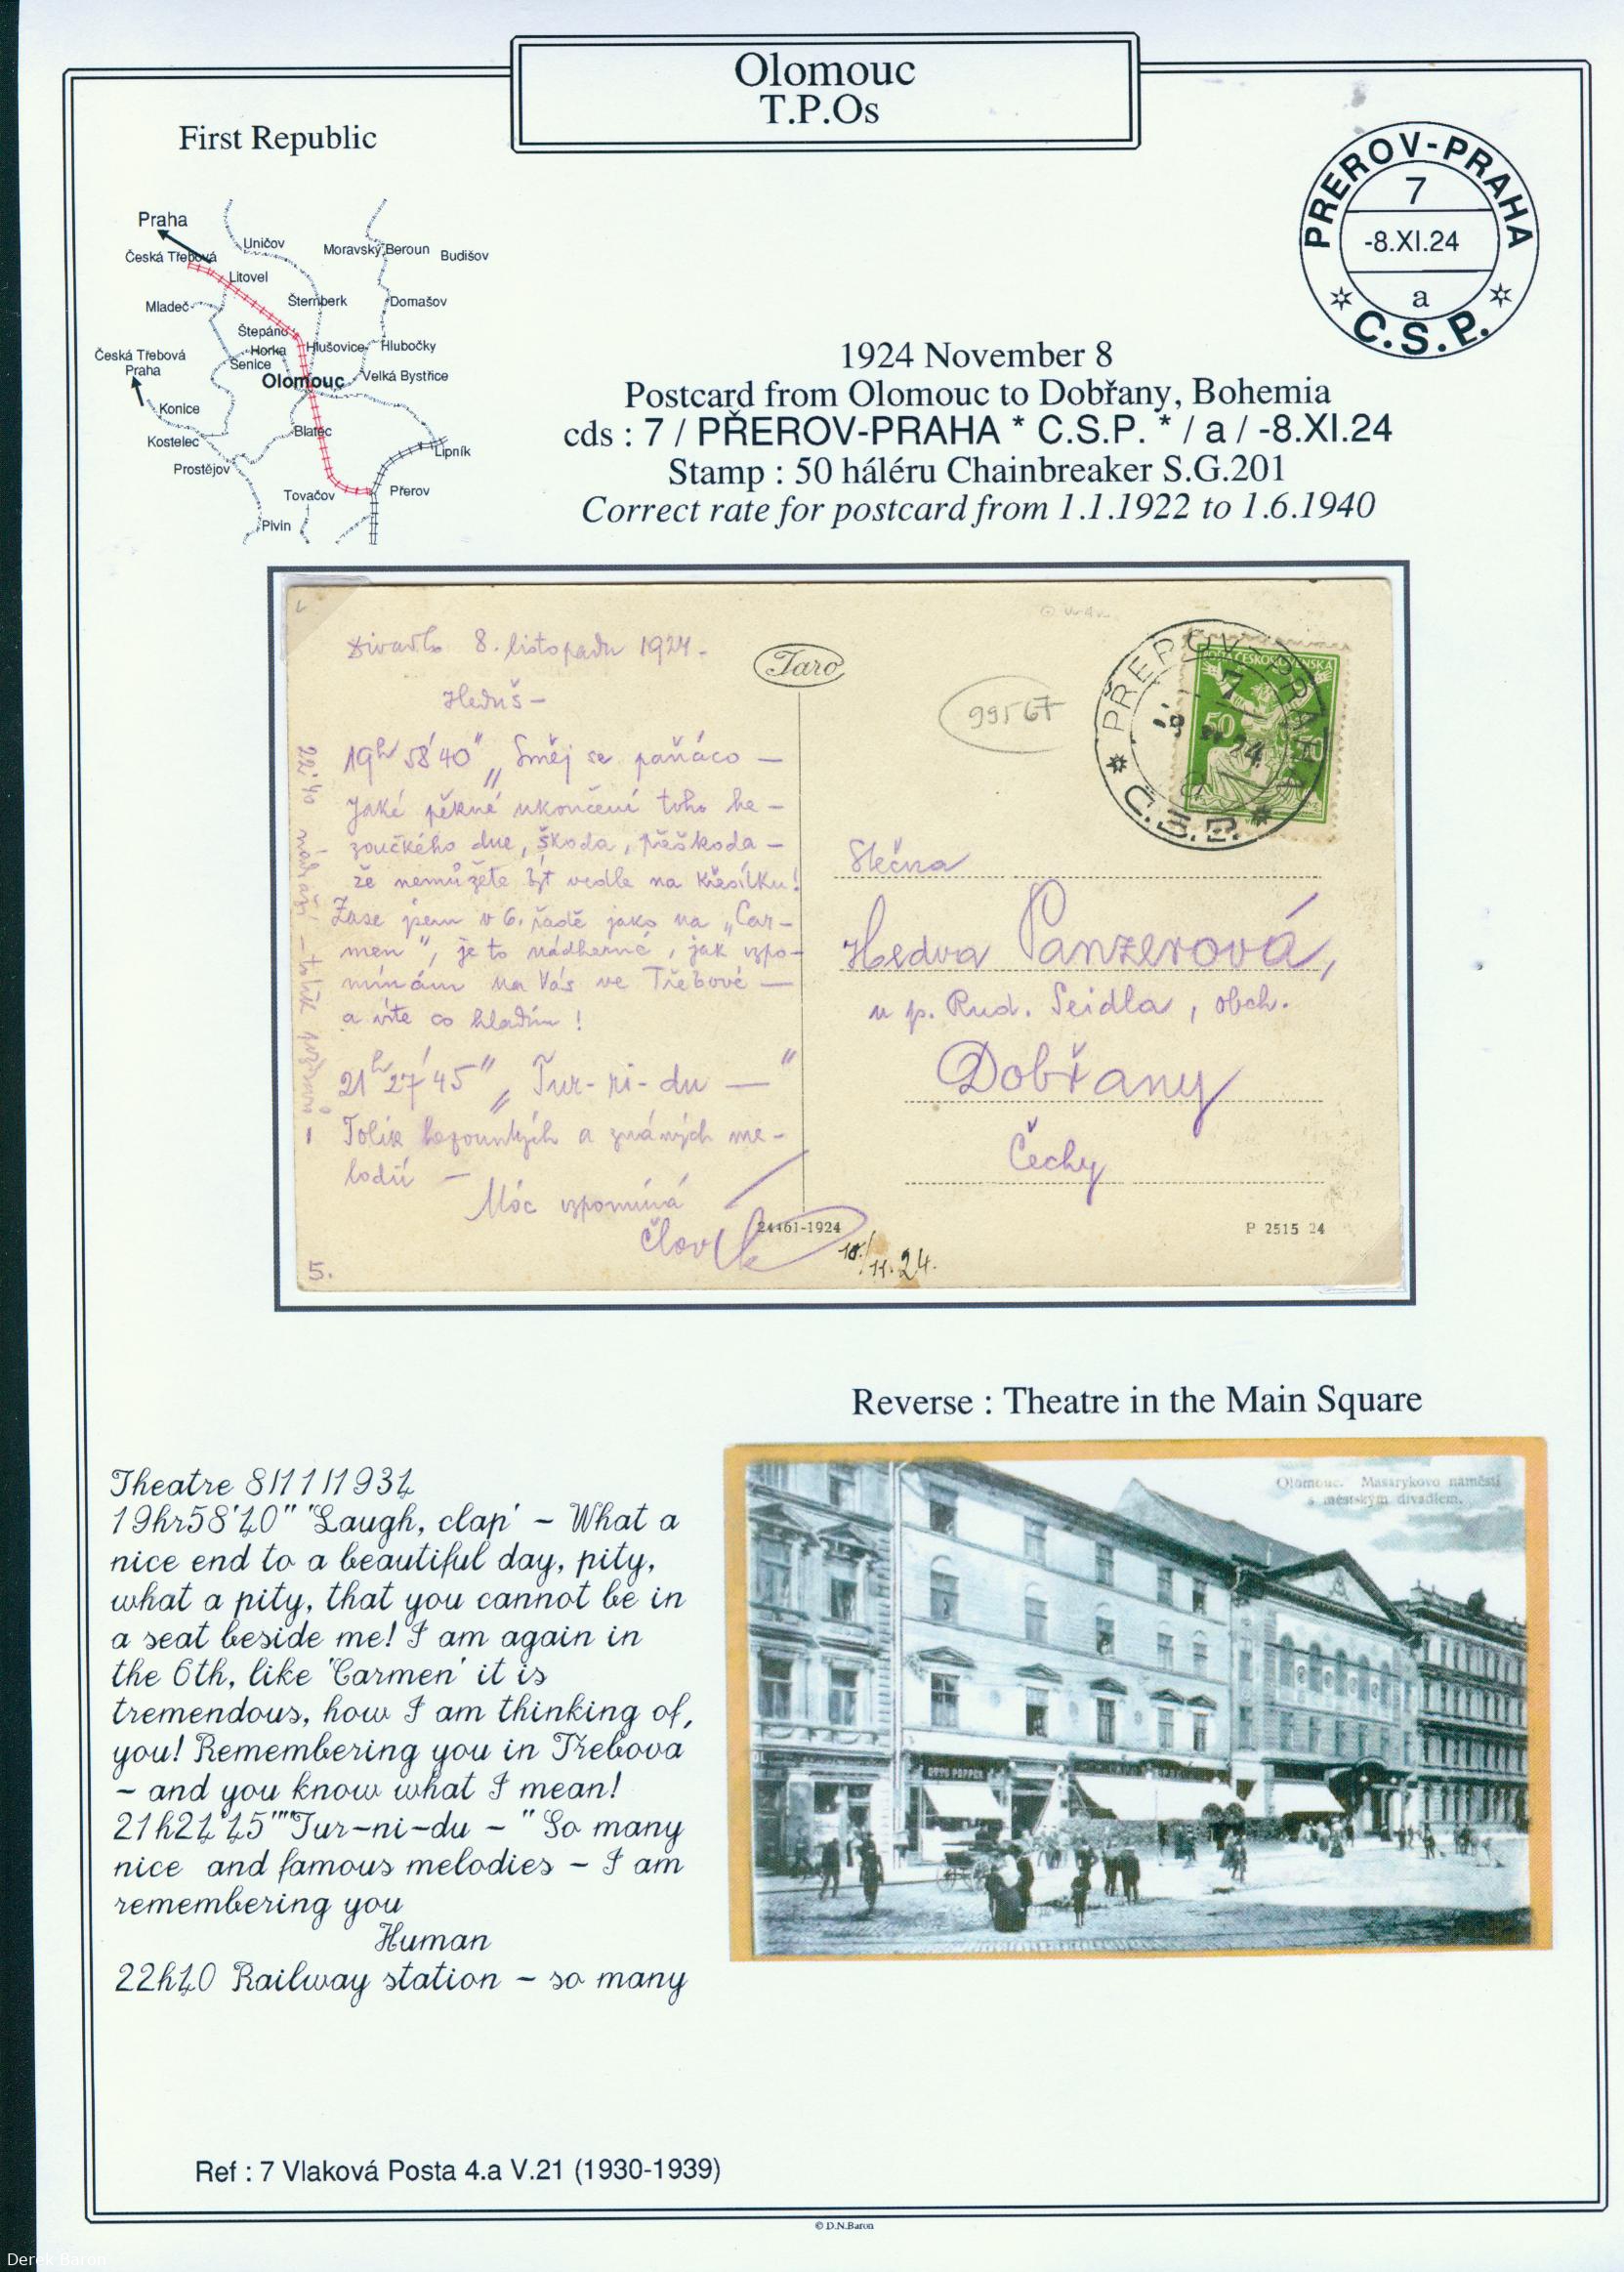 Olomouc
T.P.Os
First Republic
PŘEROV-PRAHA
7
-8.XI.24
a
* C.S.P. *
Praha
Česká Třebová
Uničov
Moravský Beroun
Budišov
Litovel
Mladeč
Šternberk
Domašov
Štepánov
Horka
Hlušovice
Hlubočky
Česká Třebová
Praha
Senice
Olomouc
Velká Bystřice
Konice
Kostelec
Blatec
Lipník
Prostějov
Tovačov
Přerov
Pivin
1924 November 8
Postcard from Olomouc to Dobřany, Bohemia
cds : 7 / PŘEROV-PRAHA * C.S.P. * / a / -8.XI.24
Stamp : 50 háléru Chainbreaker S.G.201
Correct rate for postcard from 1.1.1922 to 1.6.1940
Divadlo 8. listopadu 1924.
Heduš –
19h 58'40" „Směj se paňáco –
Jaké pěkné ukončení toho he-
zoučkého dne, škoda, přeškoda –
že nemůžete být vedle na křesílku!
Zase jsem v 6. řadě jako na „Car-
men", je to nádherné, jak vzpo-
mínám na Vás ve Třebové –
a víte co hladím!
21h 27'45" „Tur-ri-du –"
Tolik hezounkých a známých me-
lodií –
Moc vzpomíná
Člověk
22h40 nádraží – tolik
5.
Taro
99567
POŠTA ČESKOSLOVENSKÁ
50
50
PŘEROV-PRAHA
7
8 XI 24
a
* Č.S.P. *
Slečna
Hedva Panzerová,
u p. Rud. Seidla, obch.
Dobřany
Čechy
24461-1924
P 2515 24
10/11.24.
Reverse : Theatre in the Main Square
Olomouc. Masarykovo náměstí
s městským divadlem.
OTTO POPPER
Theatre 8/11/1934
19hr58'40" "Laugh, clap' – What a
nice end to a beautiful day, pity,
what a pity, that you cannot be in
a seat beside me! I am again in
the 6th, like 'Carmen' it is
tremendous, how I am thinking of,
you! Remembering you in Třebova
– and you know what I mean!
21h24'45""Tur-ni-du – " So many
nice and famous melodies – I am
remembering you
Human
22h40 Railway station – so many
Ref : 7 Vlaková Posta 4.a V.21 (1930-1939)
© D.N.Baron
Derek Baron